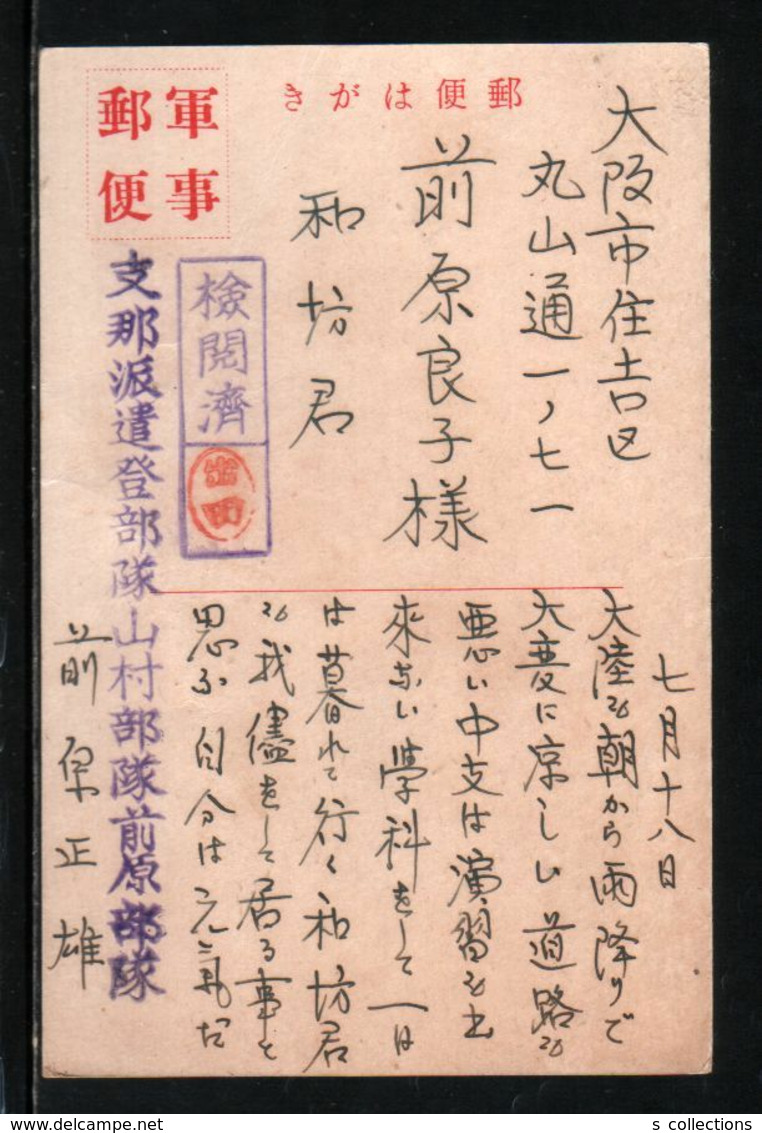 郵便はがき
軍事
郵便
大阪市住吉区
丸山通一ノ七一
前原良子様
和坊君
検閲濟
支那派遣登部隊山村部隊前原部隊
前原正雄
七月十八日
大陸も朝から雨降りで
大変に凉しい道路も
悪い中支は演習も出
来ない学科をして一日
は暮れて行く和坊君
も我儘をして居る事と
思ふ自分は元氣だ
s collections